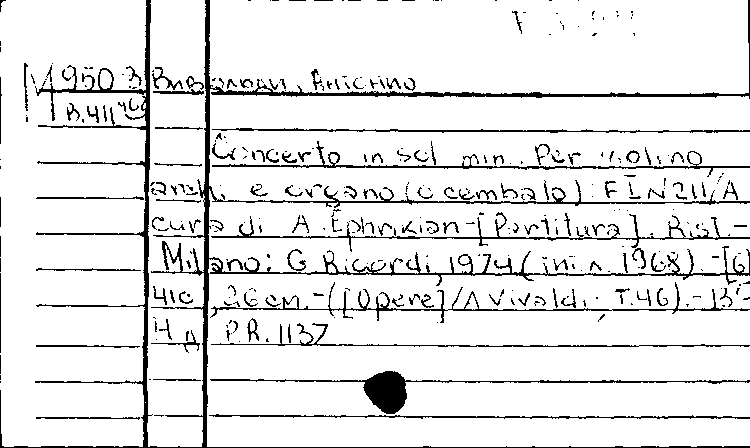 М 950 3 Вивальди, Антонио
В.411
Concerto in sol min. Per violino,
archi e organo (o cembalo) F I N 211/A
cura di A. Ephrikian - [Partitura]. Rist. -
Milano: G. Ricordi, 1974 ( 1968). - [6]
41c, 26cm. - ([Opere] / A Vivaldi; T.46). -
Н д P.R. 1137